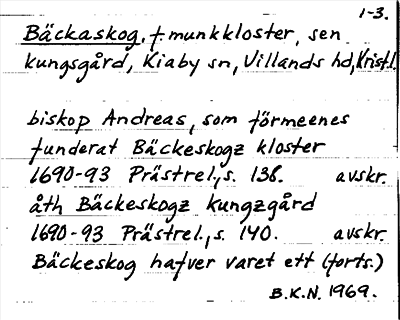 1-3.
Bäckaskog, f. munkkloster, sen.
kungsgård, Kiaby sn, Villands hd, Krist.l.
biskop Andreas, som förmeenes
funderat Bäckeskogz kloster
1690-93 Prästrel., s. 138. avskr.
åth Bäckeskogz kungzgård
1690-93 Prästrel., s. 140. avskr.
Bäckeskog hafver varet ett (forts.)
B.K.N. 1969.